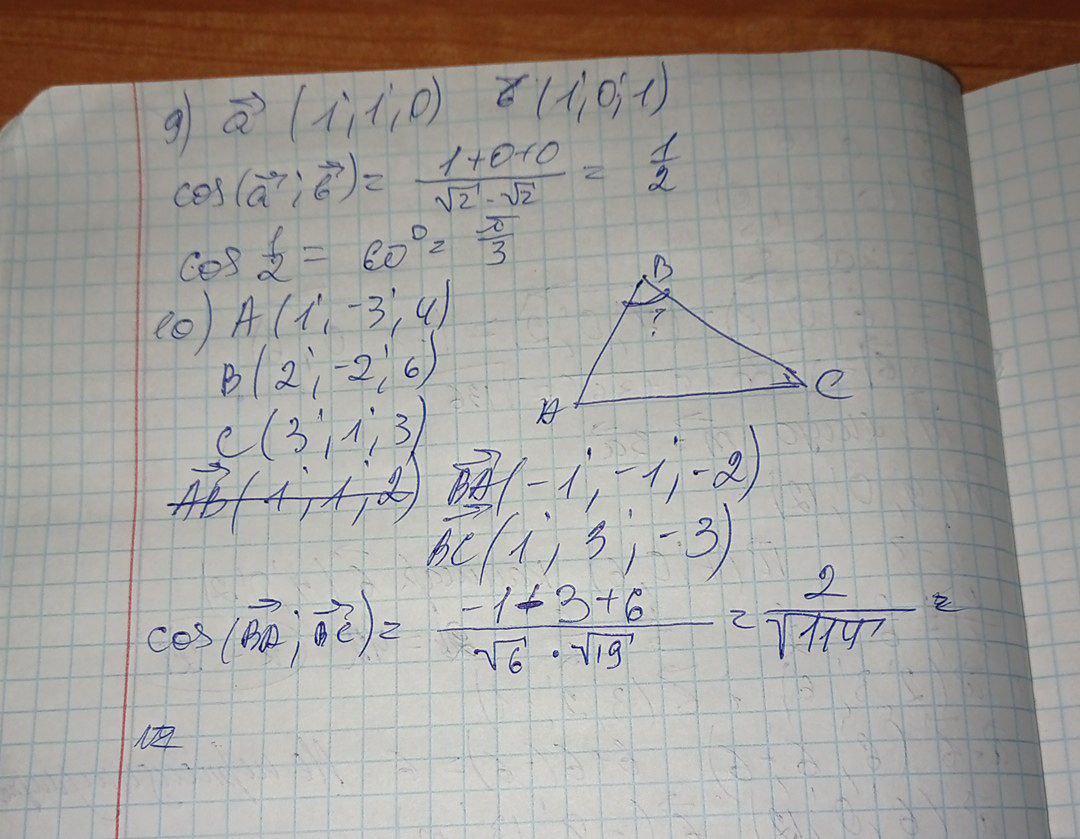 9) a⃗ (1; 1; 0) b⃗ (1; 0; 1)
cos(a⃗ ; b⃗) = (1+0+0)/(√2 · √2) = 1/2
cos 1/2 = 60° = π/3
10) A (1; -3; 4)
B (2; -2; 6)
C (3; 1; 3)
AB⃗ (1; 1; 2) BA⃗ (-1; -1; -2)
BC⃗ (1; 3; -3)
cos(BA⃗; BC⃗) = (-1 - 3 + 6)/(√6 · √19) = 2/√114 =
B
?
A
C